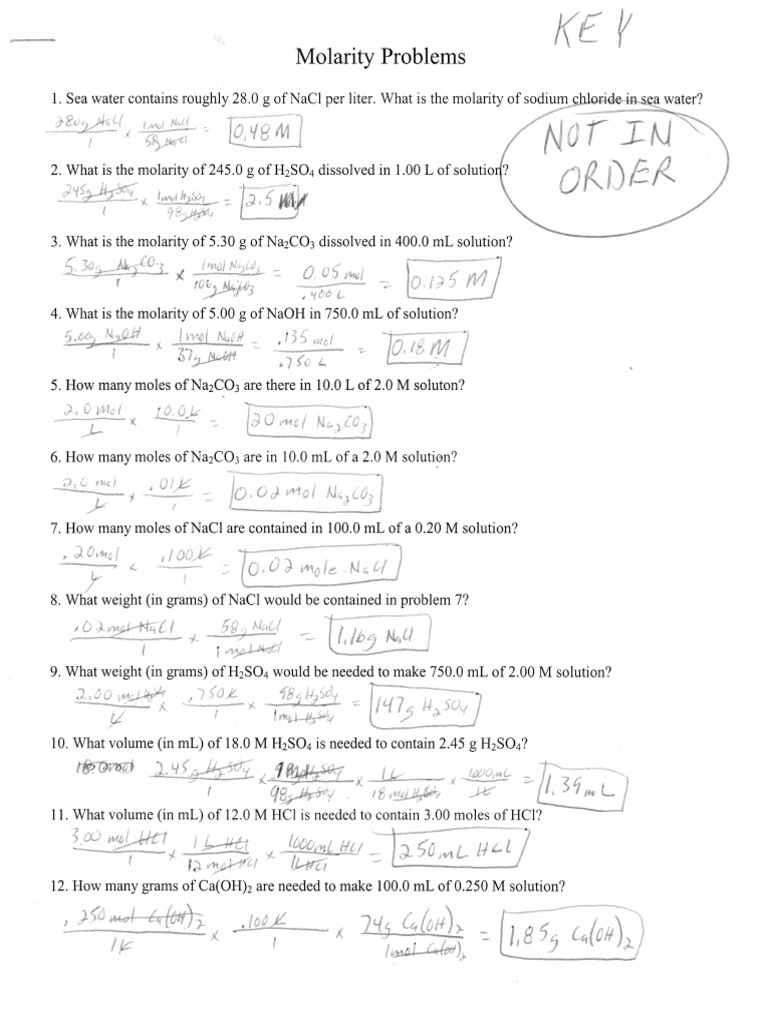 KEY
Molarity Problems
1. Sea water contains roughly 28.0 g of NaCl per liter. What is the molarity of sodium chloride in sea water?
280g NaCl / 1 x 1mol NaCl / 58g NaCl = 0.48 M
NOT IN
ORDER
2. What is the molarity of 245.0 g of H₂SO₄ dissolved in 1.00 L of solution?
245g H₂SO₄ / 1 x 1mol H₂SO₄ / 98g H₂SO₄ = 2.5 M
3. What is the molarity of 5.30 g of Na₂CO₃ dissolved in 400.0 mL solution?
5.30g Na₂CO₃ / 1 x 1mol Na₂CO₃ / 106g Na₂CO₃ = 0.05 mol / .400 L = 0.125 M
4. What is the molarity of 5.00 g of NaOH in 750.0 mL of solution?
5.00g NaOH / 1 x 1mol NaOH / 37g NaOH = .135 mol / .750 L = 0.18 M
5. How many moles of Na₂CO₃ are there in 10.0 L of 2.0 M soluton?
2.0 mol / L x 10.0 L / 1 = 20 mol Na₂CO₃
6. How many moles of Na₂CO₃ are in 10.0 mL of a 2.0 M solution?
2.0 mol / L x .01 L / 1 = 0.02 mol Na₂CO₃
7. How many moles of NaCl are contained in 100.0 mL of a 0.20 M solution?
.20mol / L x .100 L / 1 = 0.02 mole NaCl
8. What weight (in grams) of NaCl would be contained in problem 7?
.02 mol NaCl / 1 x 58g NaCl / 1 mol NaCl = 1.16g NaCl
9. What weight (in grams) of H₂SO₄ would be needed to make 750.0 mL of 2.00 M solution?
2.00 mol / L x .750 L / 1 x 98g H₂SO₄ / 1mol H₂SO₄ = 147g H₂SO₄
10. What volume (in mL) of 18.0 M H₂SO₄ is needed to contain 2.45 g H₂SO₄?
18.0 mol 2.45g H₂SO₄ / 1 x 1 mol H₂SO₄ / 98g H₂SO₄ x 1L / 18 mol H₂SO₄ x 1000mL / 1L = 1.39 mL
11. What volume (in mL) of 12.0 M HCl is needed to contain 3.00 moles of HCl?
3.00 mol HCl / 1 x 1 L HCl / 12 mol HCl x 1000mL HCl / 1L HCl = 250mL HCl
12. How many grams of Ca(OH)₂ are needed to make 100.0 mL of 0.250 M solution?
.250 mol Ca(OH)₂ / 1L x .100 L / 1 x 74g Ca(OH)₂ / 1mol Ca(OH)₂ = 1.85g Ca(OH)₂